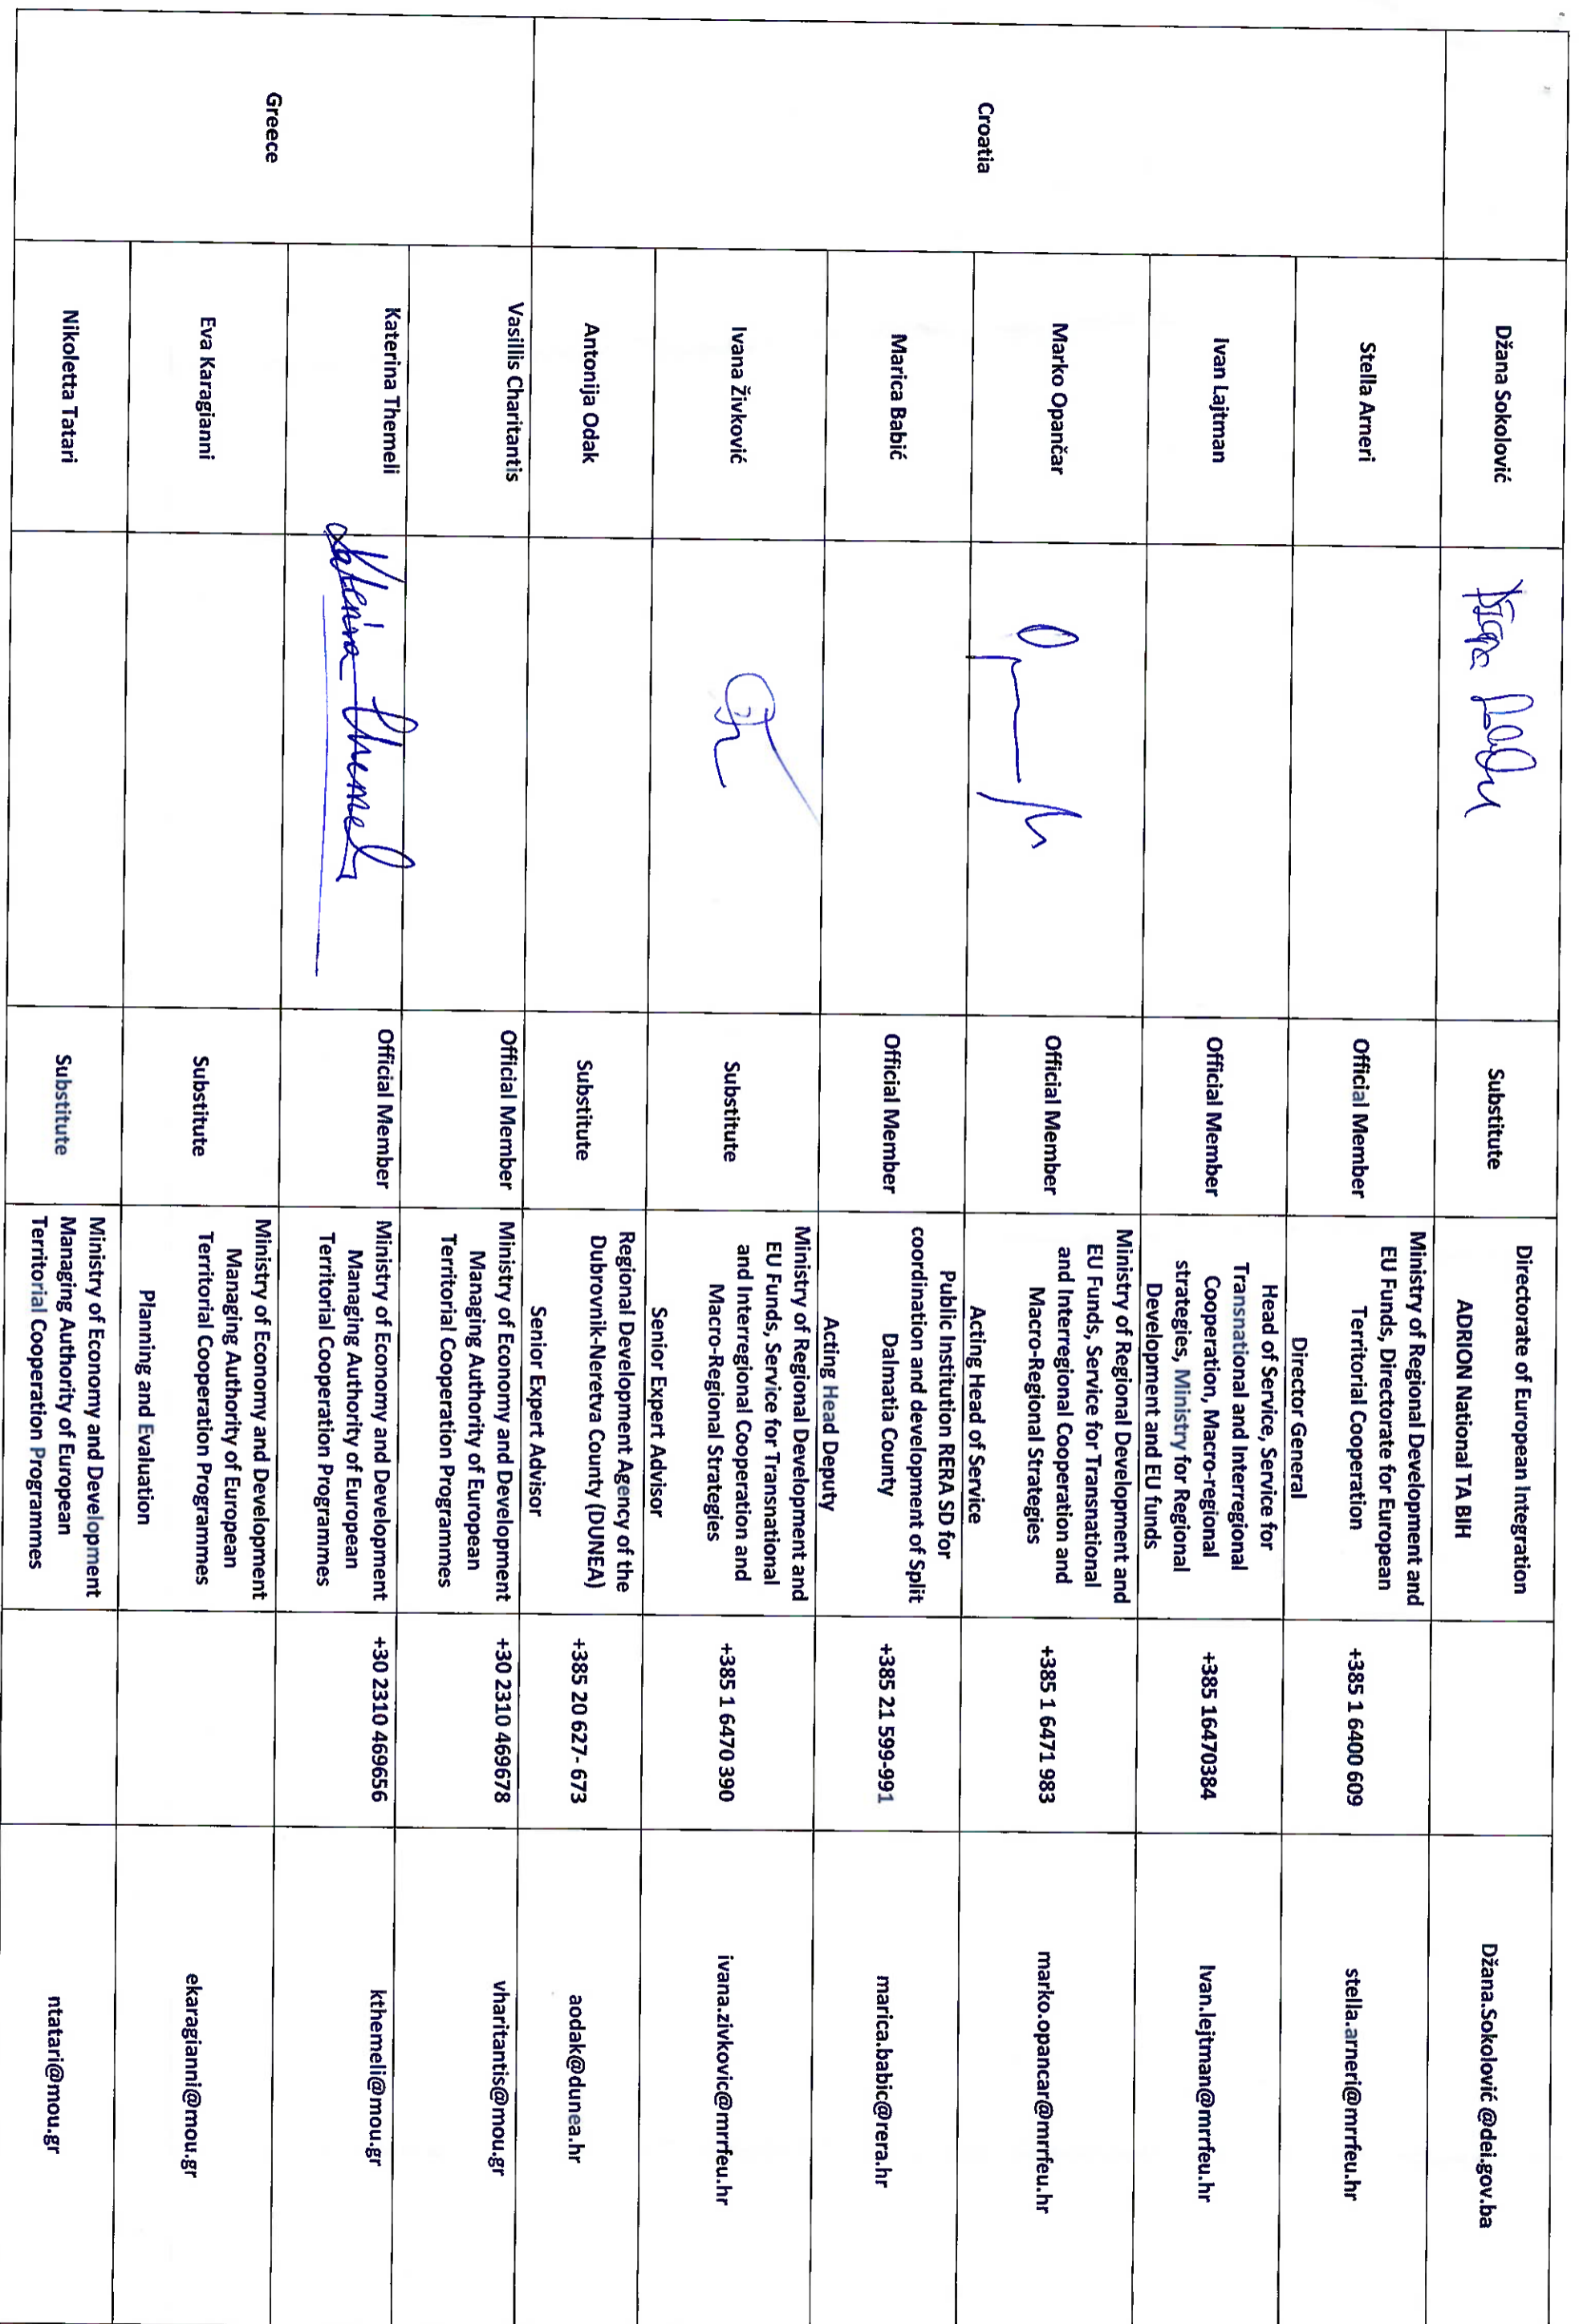 Džana Sokolović
Džana Sokolović
Substitute
Directorate of European Integration
ADRION National TA BIH
Džana.Sokolović @dei.gov.ba
Croatia
Stella Arneri
Official Member
Ministry of Regional Development and
EU Funds, Directorate for European
Territorial Cooperation
Director General
+385 1 6400 609
stella.arneri@mrrfeu.hr
Ivan Lajtman
Official Member
Head of Service, Service for
Transnational and Interregional
Cooperation, Macro-regional
strategies, Ministry for Regional
Development and EU funds
+385 16470384
Ivan.lejtman@mrrfeu.hr
Marko Opančar
Official Member
Ministry of Regional Development and
EU Funds, Service for Transnational
and Interregional Cooperation and
Macro-Regional Strategies
Acting Head of Service
+385 1 6471 983
marko.opancar@mrrfeu.hr
Marica Babić
Official Member
Public Institution RERA SD for
coordination and development of Split
Dalmatia County
Acting Head Deputy
+385 21 599-991
marica.babic@rera.hr
Ivana Živković
Substitute
Ministry of Regional Development and
EU Funds, Service for Transnational
and Interregional Cooperation and
Macro-Regional Strategies
Senior Expert Advisor
+385 1 6470 390
ivana.zivkovic@mrrfeu.hr
Antonija Odak
Substitute
Regional Development Agency of the
Dubrovnik-Neretva County (DUNEA)
Senior Expert Advisor
+385 20 627- 673
aodak@dunea.hr
Greece
Vasillis Charitantis
Official Member
Ministry of Economy and Development
Managing Authority of European
Territorial Cooperation Programmes
+30 2310 469678
vharitantis@mou.gr
Katerina Themeli
Katerina Themeli
Official Member
Ministry of Economy and Development
Managing Authority of European
Territorial Cooperation Programmes
+30 2310 469656
kthemeli@mou.gr
Eva Karagianni
Substitute
Ministry of Economy and Development
Managing Authority of European
Territorial Cooperation Programmes
Planning and Evaluation
ekaragianni@mou.gr
Nikoletta Tatari
Substitute
Ministry of Economy and Development
Managing Authority of European
Territorial Cooperation Programmes
ntatari@mou.gr